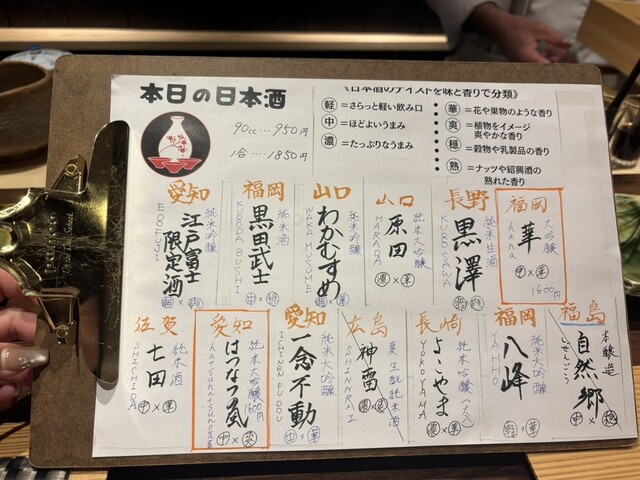 本日の日本酒
90cc…950円
1合…1850円
《日本酒のテイストを味と香りで分類》
軽=さらっと軽い飲み口
中=ほどよいうまみ
濃=たっぷりなうまみ
華=花や果物のような香り
爽=植物をイメージ
爽やかな香り
穏=穀物や乳製品の香り
熟=ナッツや紹興酒の
熟れた香り
愛知
純米吟醸
江戸富士
限定酒
EDOFUJI
福岡
純米酒
黒田武士
KURODA BUSHI
山口
純米吟醸
わかむすめ
WAKA MUSUME
山口
純米大吟醸
原田
HARADA
濃×華
長野
純米生酒
黒澤
KUROSAWA
福岡
大吟醸
華
hana
1600円
中×華
佐賀
純米酒
七田
SHICHIDA
中×華
愛知
純米大吟醸
1600円
はつなつの風
中×爽
愛知
純米大吟醸
一念不動
ICHINEN FUDOU
広島
夏 生酛純米酒
神雷
SHINRAI
長崎
純米吟醸
よこやま
YOKOYAMA
濃×華
福岡
純米大吟醸
八峰
YA HHO
福島
本醸造
自然郷
しぜんごう
中×穏